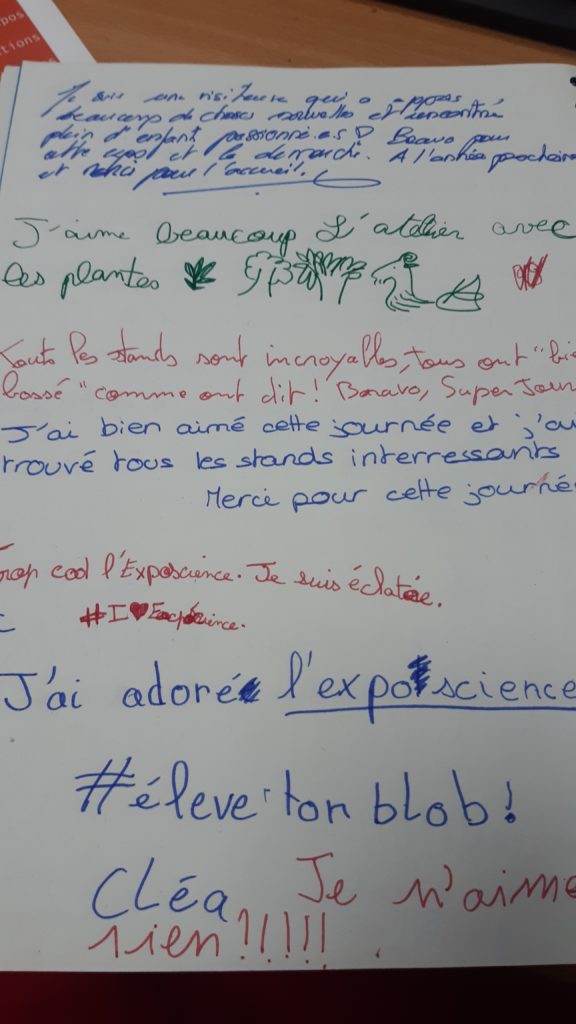 pos
tions
Je suis une visiteuse qui a appris
beaucoup de choses nouvelles et rencontré
plein d'enfant passionné.e.s Bravo pour
cette expo et la démarche. A l'année prochaine
et merci pour l'accueil.
J'aime beaucoup L'atelier avec
les plantes
Touts les stands sont incroyables, tous ont "bie
bossé" comme ont dit! Bravo, Super Journ
J'ai bien aimé cette journée et j'ai
trouvé tous les stands interressants
Merci pour cette journé
Trop cool l'Exposcience. Je suis éclatée.
#I ♥ Exposcience.
J'ai adoré l'expo science
#éleve ton blob!
Cléa Je n'aime
rien!!!!!! .